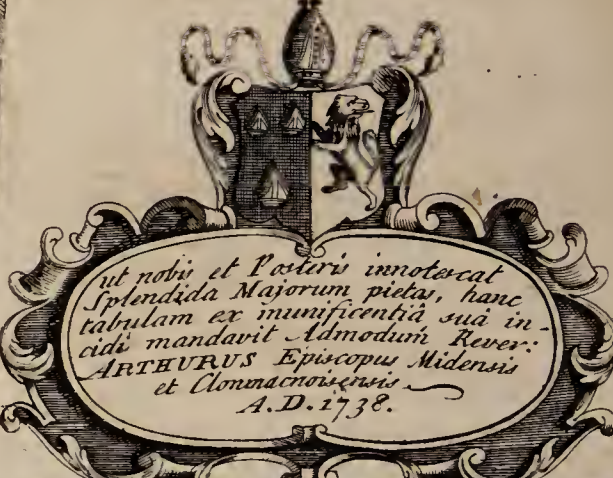 ut nobis et Posteris innotescat
Splendida Majorum pietas, hanc
tabulam ex munificentiâ suâ in-
cidi mandavit Admodum Rever:
ARTHURUS Episcopus Midensis
et Clonmacnoisensis
A.D. 1738.